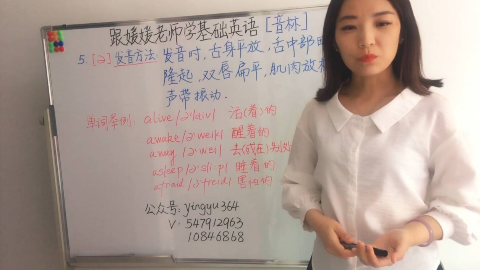 跟媛媛老师学基础英语［音标］
5. [ə]发音方法 发音时，舌身平放，舌中部
隆起，双唇扁平，肌肉放
声带振动.
单词举例: alive /ə'laiv/ 活(着)的
awake /ə'weik/ 醒着的
away /ə'wei/ 去(或在)别处
asleep /ə'sli:p/ 睡着的
afraid /ə'freid/ 害怕的
公众号: yingyu364
V: 547912963
10846868